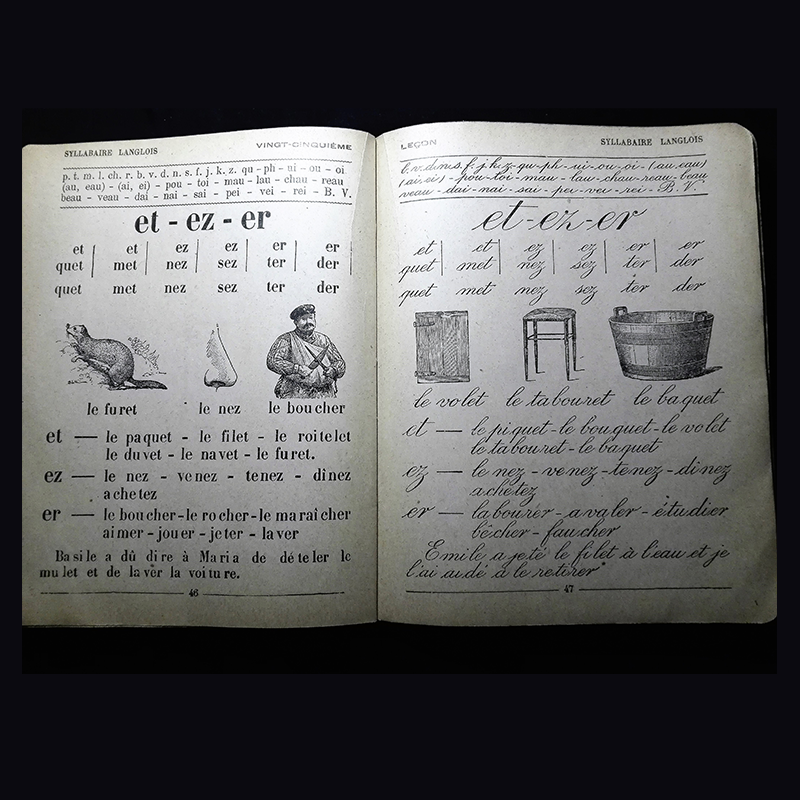 SYLLABAIRE LANGLOIS VINGT-CINQUIÈME
p. t. m. l. ch. r. b. v. d. n. s. f. j. k. z. qu - ph - ui - ou - oi
(au, eau) - (ai, ei) - pou - toi - mau - lau - chau - reau
beau - veau - dai - nai - sai - pei - vei - rei - B. V.
et - ez - er
et | et | ez | ez | er | er
quet | met | nez | sez | ter | der
quet met nez sez ter der
le furet le nez le boucher
et — le paquet - le filet - le roitelet
le duvet - le navet - le furet.
ez — le nez - venez - tenez - dînez
achetez
er — le boucher - le rocher - le maraîcher
aimer - jouer - jeter - laver
Basile a dû dire à Maria de dételer le
mulet et de laver la voiture.
46
LEÇON SYLLABAIRE LANGLOIS
b. v. d. n. s. f. j. k. z. - qu - ph - ui - ou - oi - (au, eau)
(ai, ei) - pou - toi - mau - lau - chau - reau - beau
veau - dai - nai - sai - pei - vei - rei - B. V.
et - ez - er
et | et | ez | ez | er | er
quet | met | nez | sez | ter | der
quet met nez sez ter der
le volet le tabouret le baquet
et — le piquet - le bouquet - le volet
le tabouret - le baquet
ez — le nez - venez - tenez - dinez
achetez
er — labourer - avaler - étudier
bêcher - faucher
Emile a jeté le filet à l'eau et je
l'ai aidé à le retirer
47